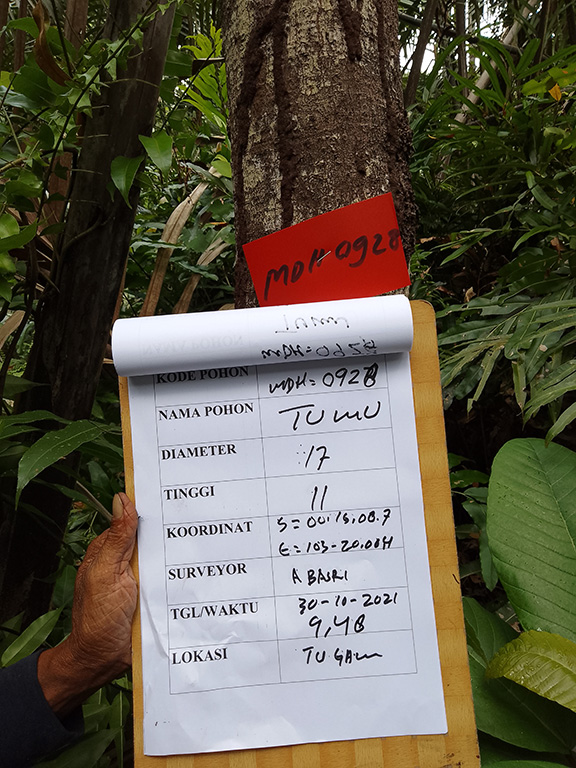 MDH-0928
KODE POHON MDH=0928
NAMA POHON TUMU
DIAMETER 17
TINGGI 11
KOORDINAT S=00.15.08.7
E=103-20.004
SURVEYOR A BASRI
TGL/WAKTU 30-10-2021
9,48
LOKASI TUGAM